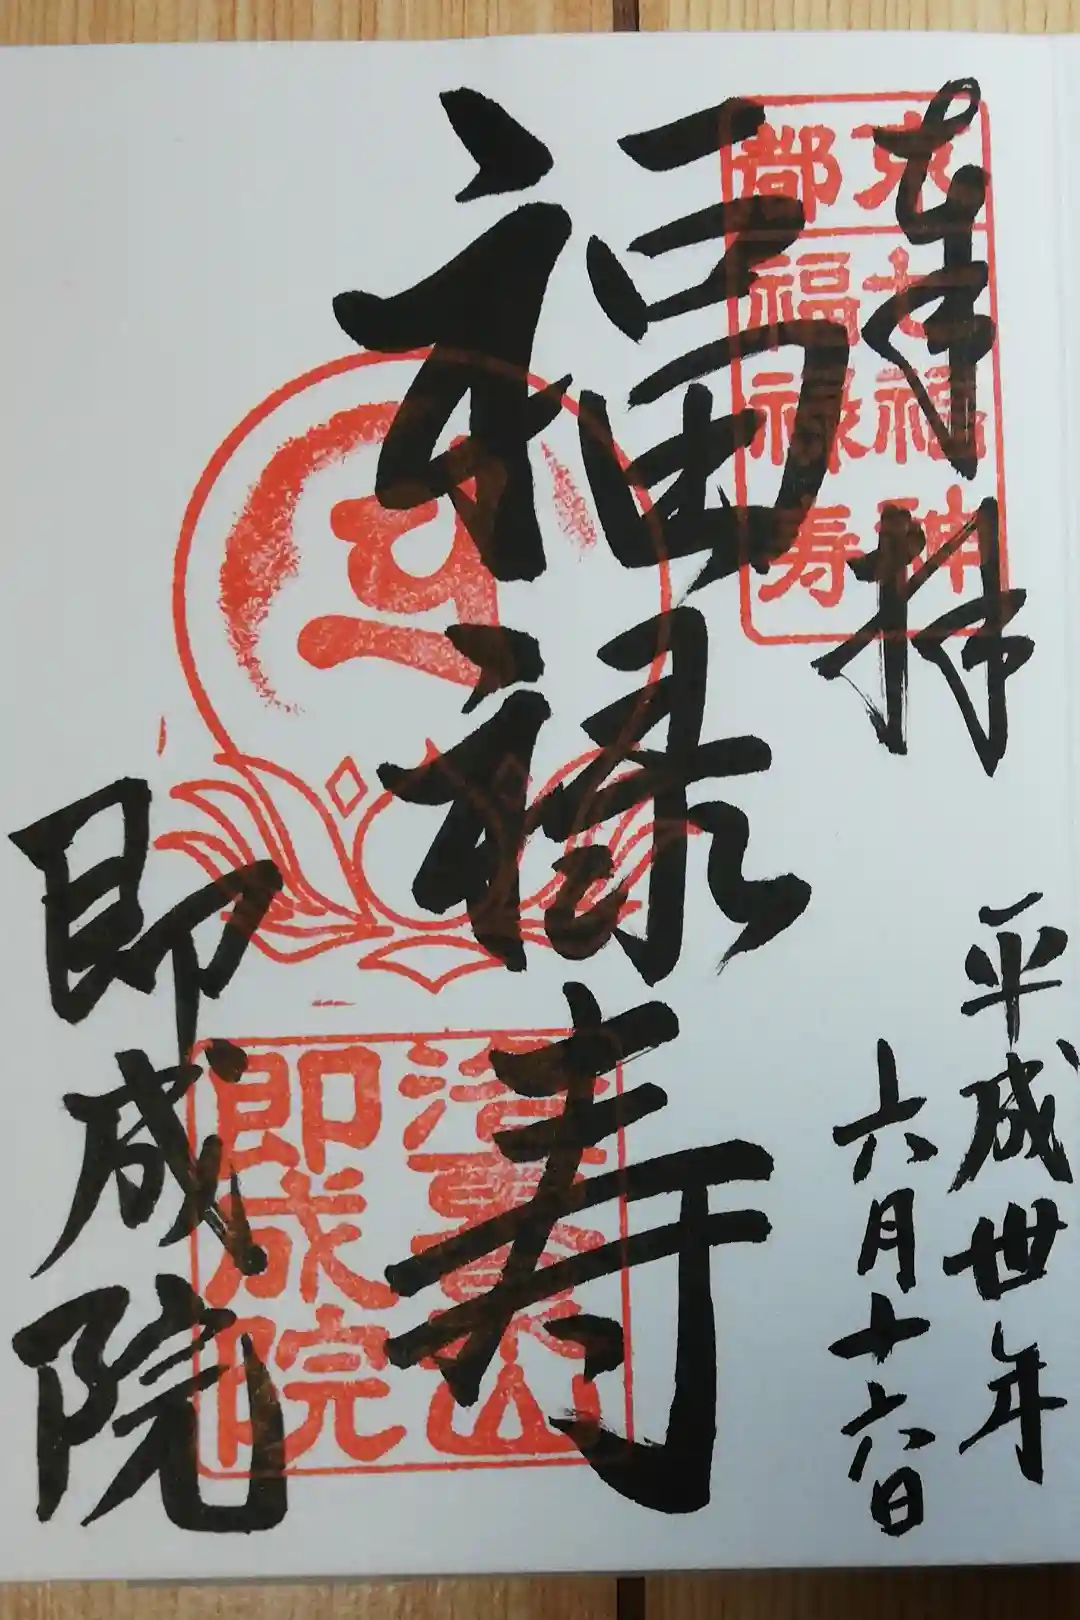 奉拝
平成卅年
六月十六日
京都
七福神
福禄寿
福禄寿
山
即成院
即成院